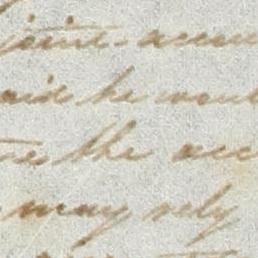 joint-accou
aid he woul
the acc
may rely